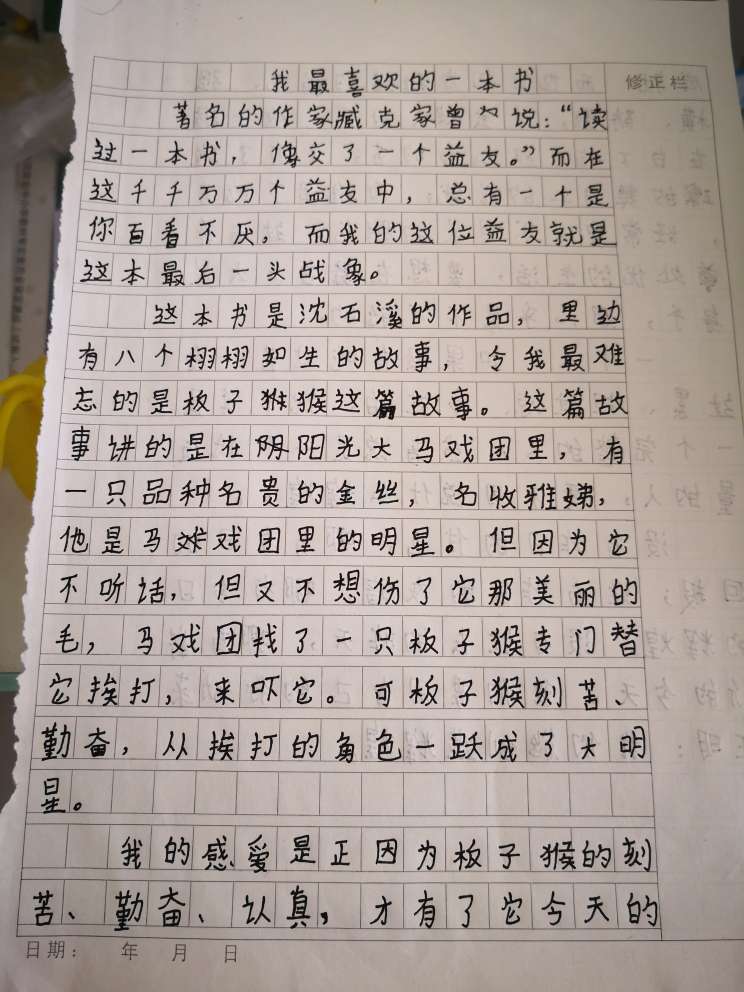 我最喜欢的一本书
修正栏
著名的作家臧克家曾说:“读
过一本书，像交了一个益友。”而在
这千千万万个益友中，总有一个是
你百看不厌，而我的这位益友就是
这本最后一头战象。
这本书是沈石溪的作品，里边
有八个栩栩如生的故事，令我最难
忘的是板子猴这篇故事。这篇故
事讲的是在阴阳光大马戏团里，有
一只品种名贵的金丝，名收雅娣，
他是马戏团里的明星。但因为它
不听话，但又不想伤了它那美丽的
毛，马戏团找了一只板子猴专门替
它挨打，来吓它。可板子猴刻苦、
勤奋，从挨打的角色一跃成了大明
星。
我的感爱是正因为板子猴的刻
苦、勤奋、认真，才有了它今天的
日期： 年 月 日